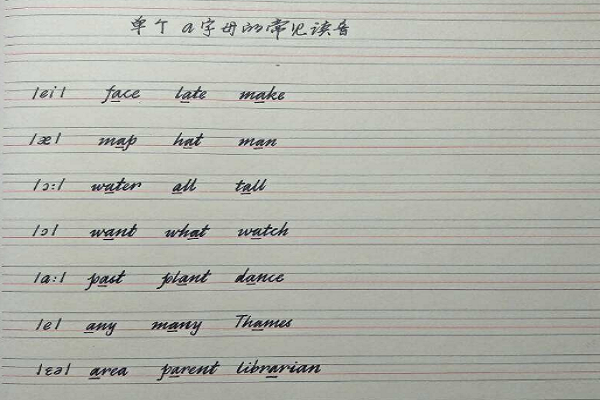 单个 a字母的常见读音
/ei/ face late make
/æ/ map hat man
/ɔ:/ water all tall
/ɔ/ want what watch
/a:/ past plant dance
/e/ any many Thames
/εə/ area parent librarian